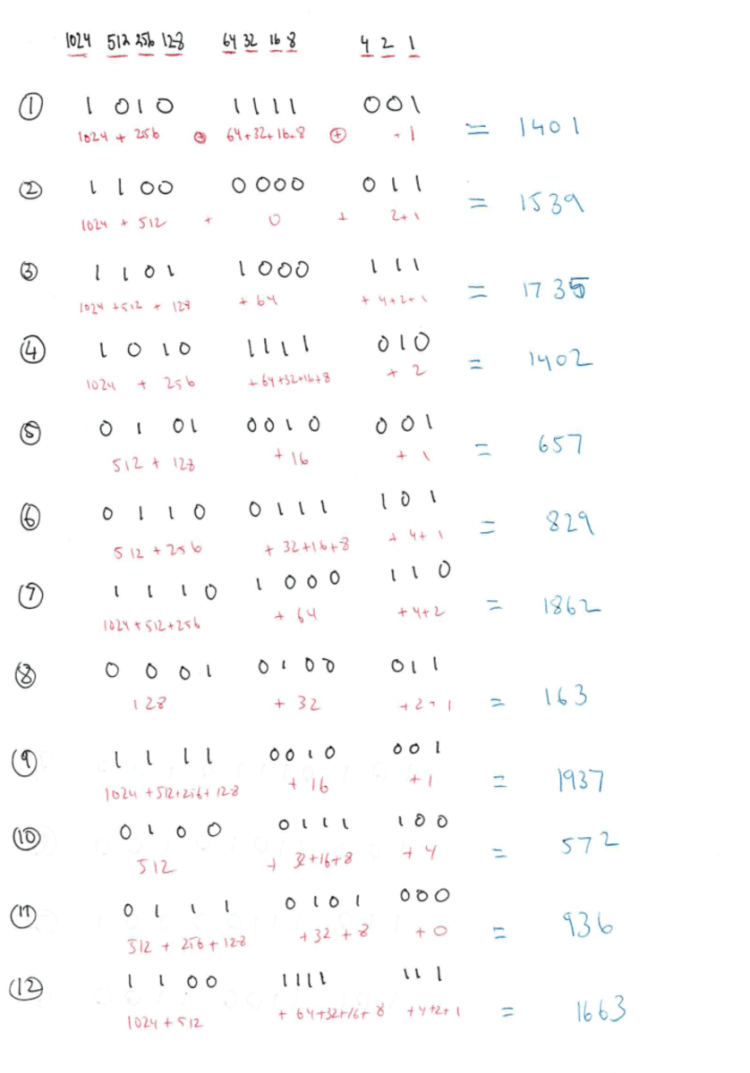 1024 512 256 128 64 32 16 8 4 2 1
① 1 0 1 0 1 1 1 1 0 0 1
1024 + 256 ⊕ 64+32+16+8 ⊕ +1 = 1401
② 1 1 0 0 0 0 0 0 0 1 1
1024 + 512 + 0 + 2+1 = 1539
③ 1 1 0 1 1 0 0 0 1 1 1
1024 +512 + 128 + 64 + 4+2+1 = 1735
④ 1 0 1 0 1 1 1 1 0 1 0
1024 + 256 +64+32+16+8 + 2 = 1402
⑤ 0 1 0 1 0 0 1 0 0 0 1
512 + 128 + 16 + 1 = 657
⑥ 0 1 1 0 0 1 1 1 1 0 1
512 + 256 + 32+16+8 + 4+ 1 = 829
⑦ 1 1 1 0 1 0 0 0 1 1 0
1024 + 512+256 + 64 +4+2 = 1862
⑧ 0 0 0 1 0 1 0 0 0 1 1
128 + 32 +2+1 = 163
⑨ 1 1 1 1 0 0 1 0 0 0 1
1024 +512+256+ 128 + 16 +1 = 1937
⑩ 0 1 0 0 0 1 1 1 1 0 0
512 + 32+16+8 + 4 = 572
⑪ 0 1 1 1 0 1 0 1 0 0 0
512 + 256 + 128 +32 + 8 + 0 = 936
⑫ 1 1 0 0 1 1 1 1 1 1 1
1024 + 512 + 64+32+16+ 8 +4+2+1 = 1663